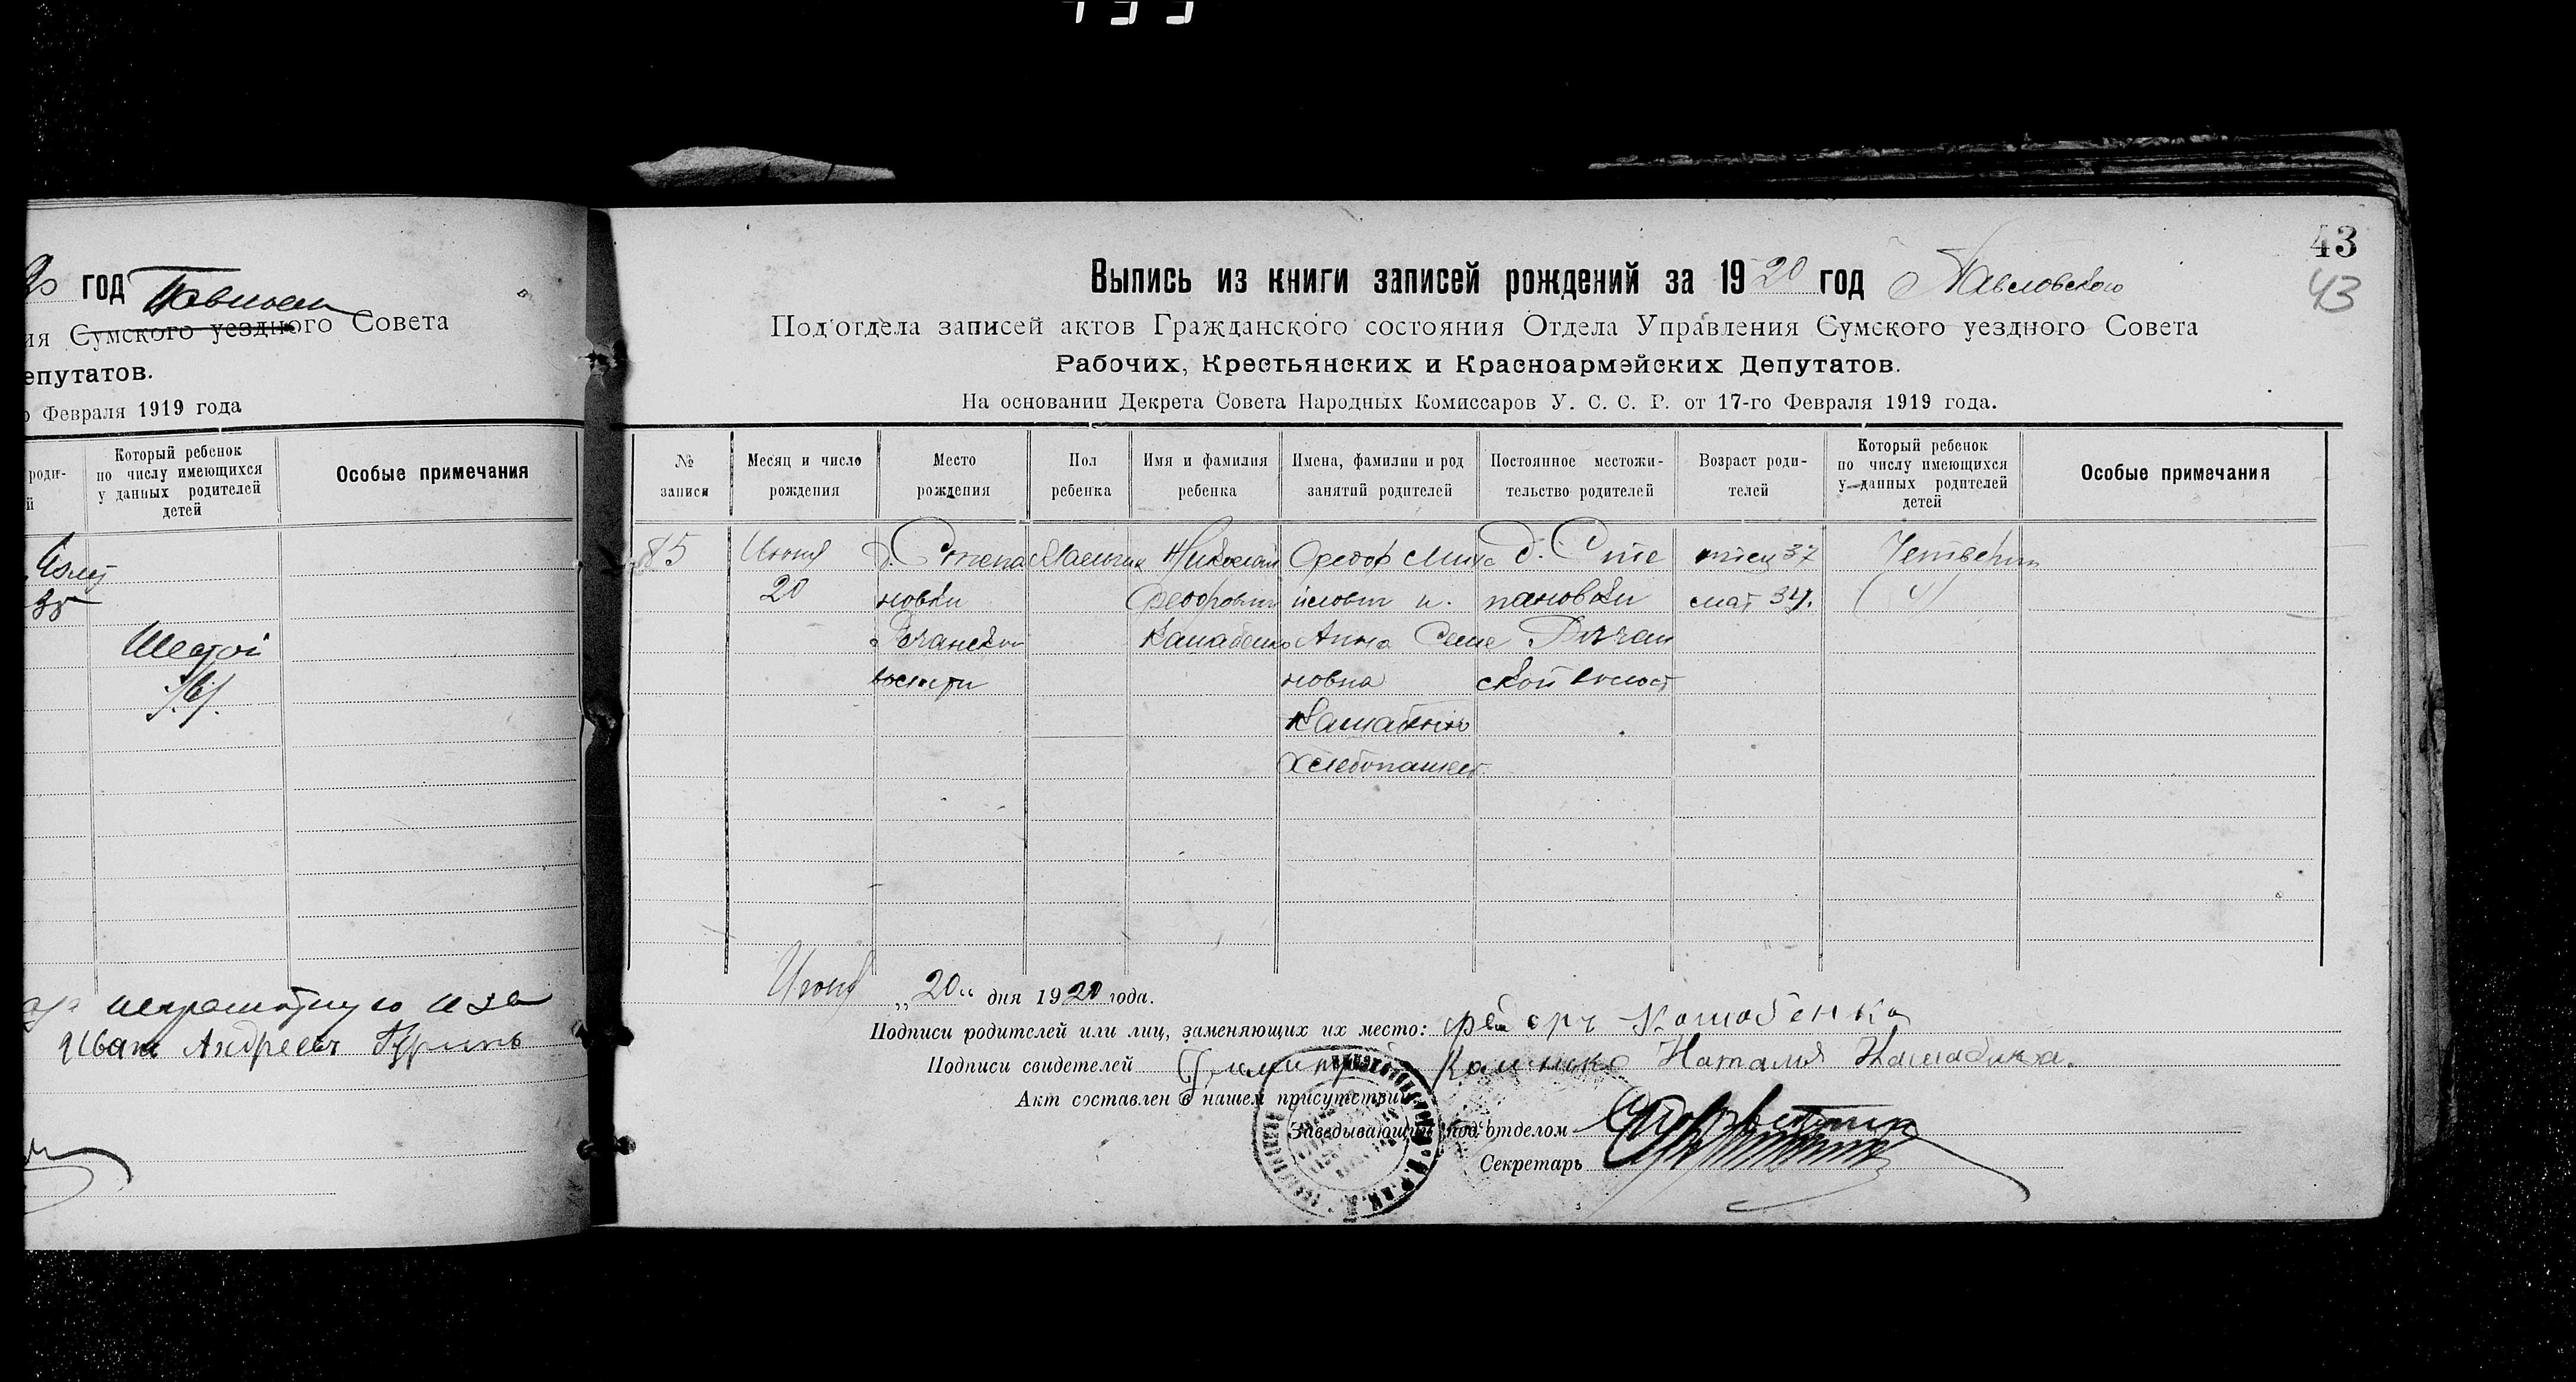 год
ия Сумского уездного Совета
епутатов.
Февраля 1919 года
роди-
й
Который ребенок
по числу имеющихся
у данных родителей
детей
Особые примечания
35
Шестой
/6/.
неграмотную
Иван Андреевъ
43
Выпись из книги записей рождений за 1920 год Павловского
43
Под'отдела записей актов Гражданского состояния Отдела Управления Сумского уездного Совета
Рабочих, Крестьянских и Красноармейских Депутатов.
На основании Декрета Совета Народных Комиссаров У. С. С. Р. от 17-го Февраля 1919 года.
№
записи
Месяц и число
рождения
Место
рождения
Пол
ребенка
Имя и фамилия
ребенка
Имена, фамилии и род
занятий родителей
Постоянное местожи-
тельство родителей
Возраст роди-
телей
Который ребенок
по числу имеющихся
у данных родителей
детей
Особые примечания
85
Июня
20
д. Степа
новки
Речанской
волости
Мальчик
Николай
Федорович
Федор Миха
йлович и
Анна Семе
новна
Хлебопашест.
д. Сте
пановки
Речан
ской волост
отец 37
мат 34.
Четверт
(4)
Июня „20“ дня 1920 года.
Подписи родителей или лиц, заменяющих их место:
Подписи свидетелей Наталия
Акт составлен в нашем присутствии
Заведывающий под'отделом
Секретарь